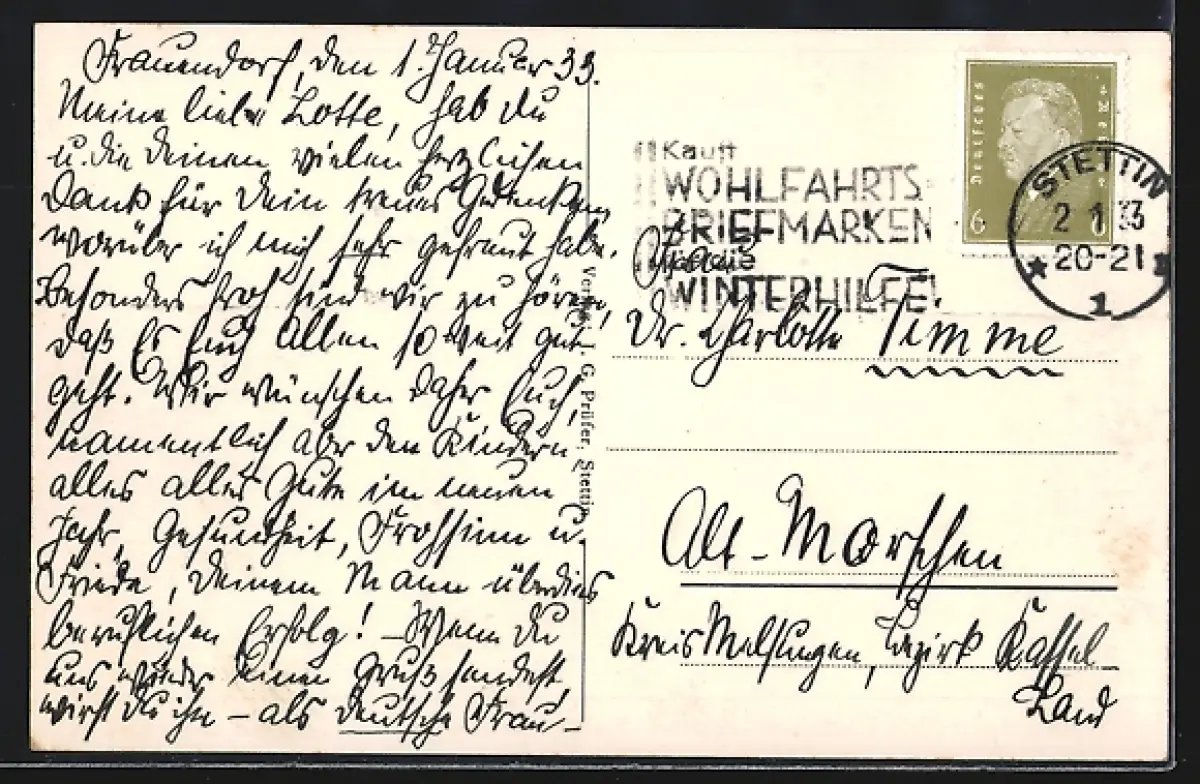 Frauendorf, den 1. Januar 33.
Meine liebe Lotte, hab Du
u. die Deinen vielen herzlichen
Dank für Dein treues Gedenken,
worüber ich mich sehr gefreut habe.
Besonders froh sind wir zu hören,
daß es Euch Allen so weit gut
geht. Wir wünschen daher Euch,
namentlich aber den Kindern
alles alles Gute im neuen
Jahr, Gesundheit, Frohsinn u.
Friede, Deinem Mann überdies
beruflichen Erfolg! – Wenn Du
uns wieder einen Gruß sendest,
wirst Du ihn – als deutsche Frau –
Verlag G. Prüfer, Stettin
Kauft
WOHLFAHRTS
BRIEFMARKEN
für die
WINTERHILFE!
Deutsches Reich
6
STETTIN
2 1 33
20-21
★ 1
Frau
Dr. Charlotte Timme
Alt-Morschen
Kreis Melsungen, Bezirk Kassel
Land